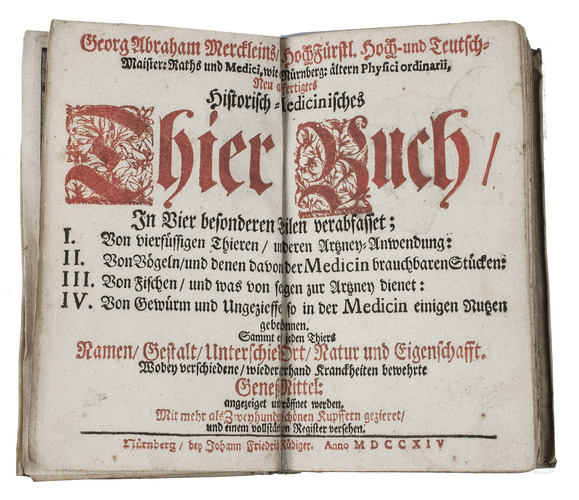 Georg Abraham Merckleins / HochFürstl. Hoch-und Teutsch-
Maister: Raths und Medici, wie Nürnberg: ältern Physici ordinarii,
Neu fertigtes
Historisch-Medicinisches
Thier Buch /
In Vier besonderen eilen verabfasset;
I. Von vierfüssigen Thieren / deren Artzney-Anwendung:
II. Von Vögeln / und denen davon der Medicin brauchbaren Stücken:
III. Von Fischen / und was von zur Artzney dienet:
IV. Von Gewürm und Ungezieffe so in der Medicin einigen Nutzen
Sammt jeden Thiers
Namen / Gestalt / Unterschie Ort / Natur und Eigenschafft.
Wobey verschiedene / wieder erhand Kranckheiten bewehrte
Genes Mittel:
angezeiget röffnet werden.
Mit mehr als Zweyhund schönen Kupffern gezieret /
und einem vollstän Register versehen.
Nürnberg / bey Johann Friedri Rüdiger. Anno MDCCXIV